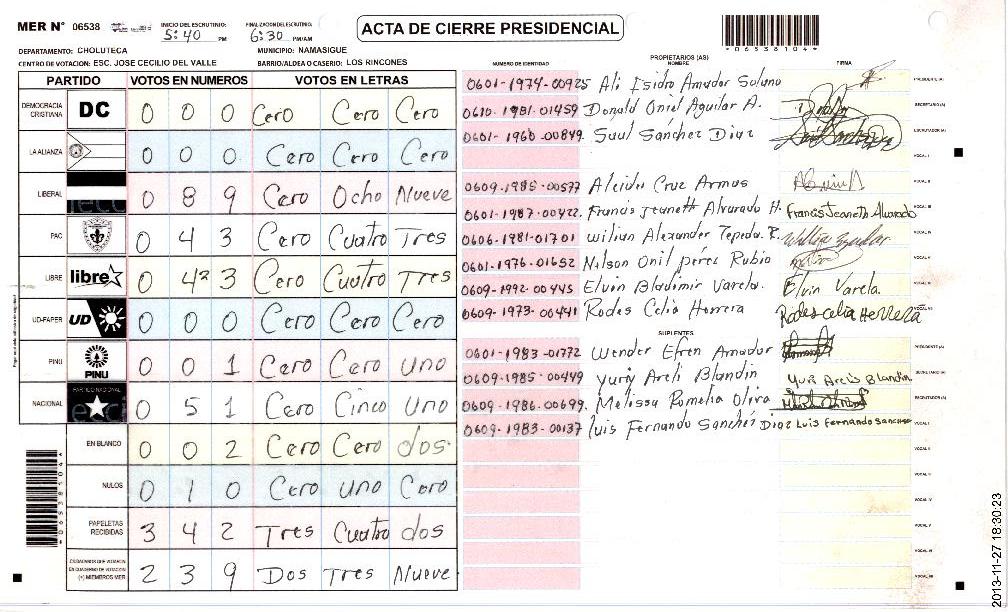 MER N° 06538
INICIO DEL ESCRUTINIO: 5:40 PM
FINALIZACION ESCRUTINIO: 6:30 PM/AM
ACTA DE CIERRE PRESIDENCIAL
*06538104*
DEPARTAMENTO: CHOLUTECA
MUNICIPIO: NAMASIGUE
CENTRO DE VOTACION: ESC. JOSE CECILIO DEL VALLE
BARRIO/ALDEA O CASERIO: LOS RINCONES
PARTIDO VOTOS EN NUMEROS VOTOS EN LETRAS
DEMOCRACIA CRISTIANA DC 0 0 0 Cero Cero Cero
LA ALIANZA 0 0 0 Cero Cero Cero
LIBERAL 0 8 9 Cero Ocho Nueve
PAC 0 4 3 Cero Cuatro Tres
LIBRE libre 0 4 3 Cero Cuatro Tres
UD-FAPER UD 0 0 0 Cero Cero Cero
PINU PINU 0 0 1 Cero Cero uno
NACIONAL PARTIDO NACIONAL 0 5 1 Cero Cinco uno
EN BLANCO 0 0 2 Cero Cero dos
NULOS 0 1 0 Cero uno Cero
PAPELETAS RECIBIDAS 3 4 2 Tres Cuatro dos
CIUDADANOS QUE VOTARON EN CUADERNO DE VOTACION (+) MIEMBROS MER 2 3 9 Dos Tres Nueve
PROPIETARIOS (AS)
NUMERO DE IDENTIDAD NOMBRE FIRMA
0601-1974-00925 Ali Isidro Amador Solano PRESIDENTE(A)
0610-1981-01459 Donald Oniel Aguilar A. SECRETARIO(A)
0601-1960-00849 Saul Sánchez Diaz ESCRUTADOR(A)
VOCAL I
0609-1985-00577 Aleida Cruz Armas VOCAL II
0601-1987-00422 Francis Jeaneth Alvarado H. Francis Jeaneth Alvarado VOCAL III
0606-1981-01701 Wilian Alexander Zepeda. R. VOCAL IV
0601-1976-01652 Nilson Onil pérez Rubio VOCAL V
0609-1992-00445 Elvin Bladimir Varela. Elvin Varela. VOCAL VI
0609-1973-00441 Rodes Celia Herrera Rodes Celia Herrera VOCAL VII
SUPLENTES
0601-1983-01772 Wender Efren Amador PRESIDENTE(A)
0609-1985-00449 Yuriy Areli Blandin Yuri Areli Blandin SECRETARIO(A)
0609-1986-00699 Melissa Romelia Oliva ESCRUTADOR(A)
0609-1983-00137 Luis Fernando Sanchés Diaz Luis Fernando Sanchez VOCAL I
VOCAL II
VOCAL III
VOCAL IV
VOCAL V
VOCAL VI
VOCAL VII
*06538104*
2013-11-27 18:30:23